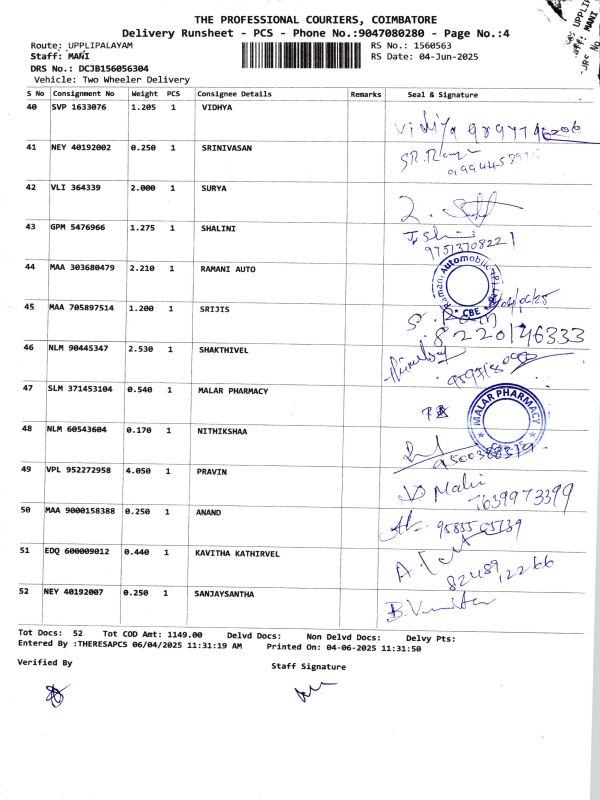 THE PROFESSIONAL COURIERS, COIMBATORE
Delivery Runsheet - PCS - Phone No.:9047080280 - Page No.:4
Route: UPPLIPALAYAM RS No.: 1560563
Staff: MANI RS Date: 04-Jun-2025
DRS No.: DCJB156056304
Vehicle: Two Wheeler Delivery
S No Consignment No Weight PCS Consignee Details Remarks Seal & Signature
40 SVP 1633076 1.205 1 VIDHYA
Vidiya
41 NEY 40192002 0.250 1 SRINIVASAN
42 VLI 364339 2.000 1 SURYA
43 GPM 5476966 1.275 1 SHALINI
9751370822
44 MAA 303680479 2.210 1 RAMANI AUTO
Ramani Automobile CBE
45 MAA 705897514 1.200 1 SRIJIS
8220146333
46 NLM 90445347 2.530 1 SHAKTHIVEL
47 SLM 371453104 0.540 1 MALAR PHARMACY
MALAR PHARMACY
48 NLM 60543604 0.170 1 NITHIKSHAA
49 VPL 952272958 4.050 1 PRAVIN
7639973399
50 MAA 9000158388 0.250 1 ANAND
51 EDQ 600009012 0.440 1 KAVITHA KATHIRVEL
52 NEY 40192007 0.250 1 SANJAYSANTHA
Tot Docs: 52 Tot COD Amt: 1149.00 Delvd Docs: Non Delvd Docs: Delvy Pts:
Entered By :THERESAPCS 06/04/2025 11:31:19 AM Printed On: 04-06-2025 11:31:50
Verified By Staff Signature